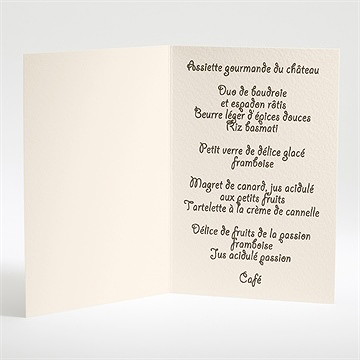 Assiette gourmande du château
Duo de baudroie
et espadon rôtis
Beurre léger d'épices douces
Riz basmati
Petit verre de délice glacé
framboise
Magret de canard, jus acidulé
aux petits fruits
Tartelette à la crème de cannelle
Délice de fruits de la passion
framboise
Jus acidulé passion
Café